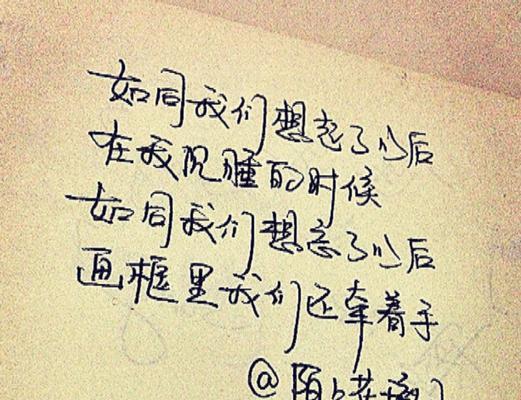 如同我们想起了以后
在我沉睡的时候
如同我们想忘了以后
画框里我们还牵着手
@陌上花